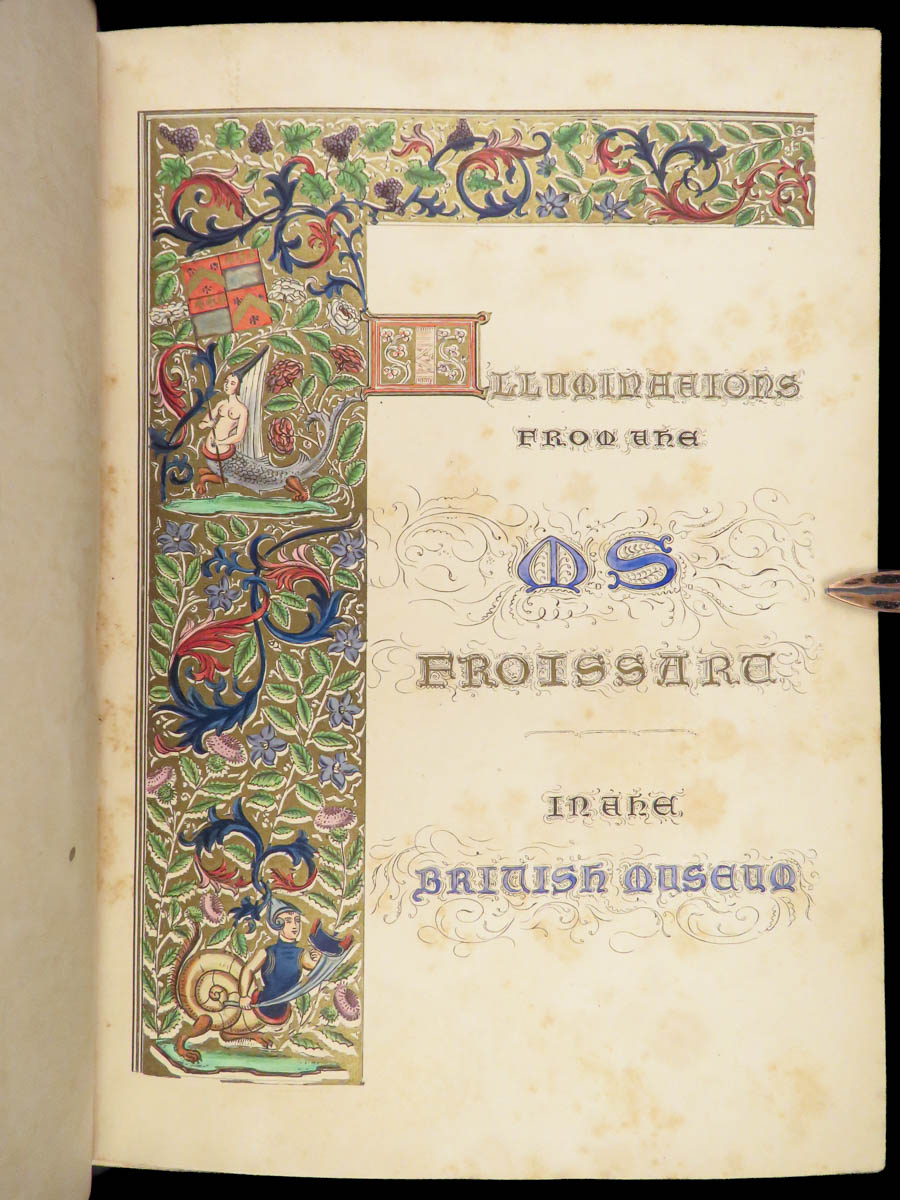 ILLUMINATIONS
FROM THE
MS
FROISSART
IN THE
BRITISH MUSEUM